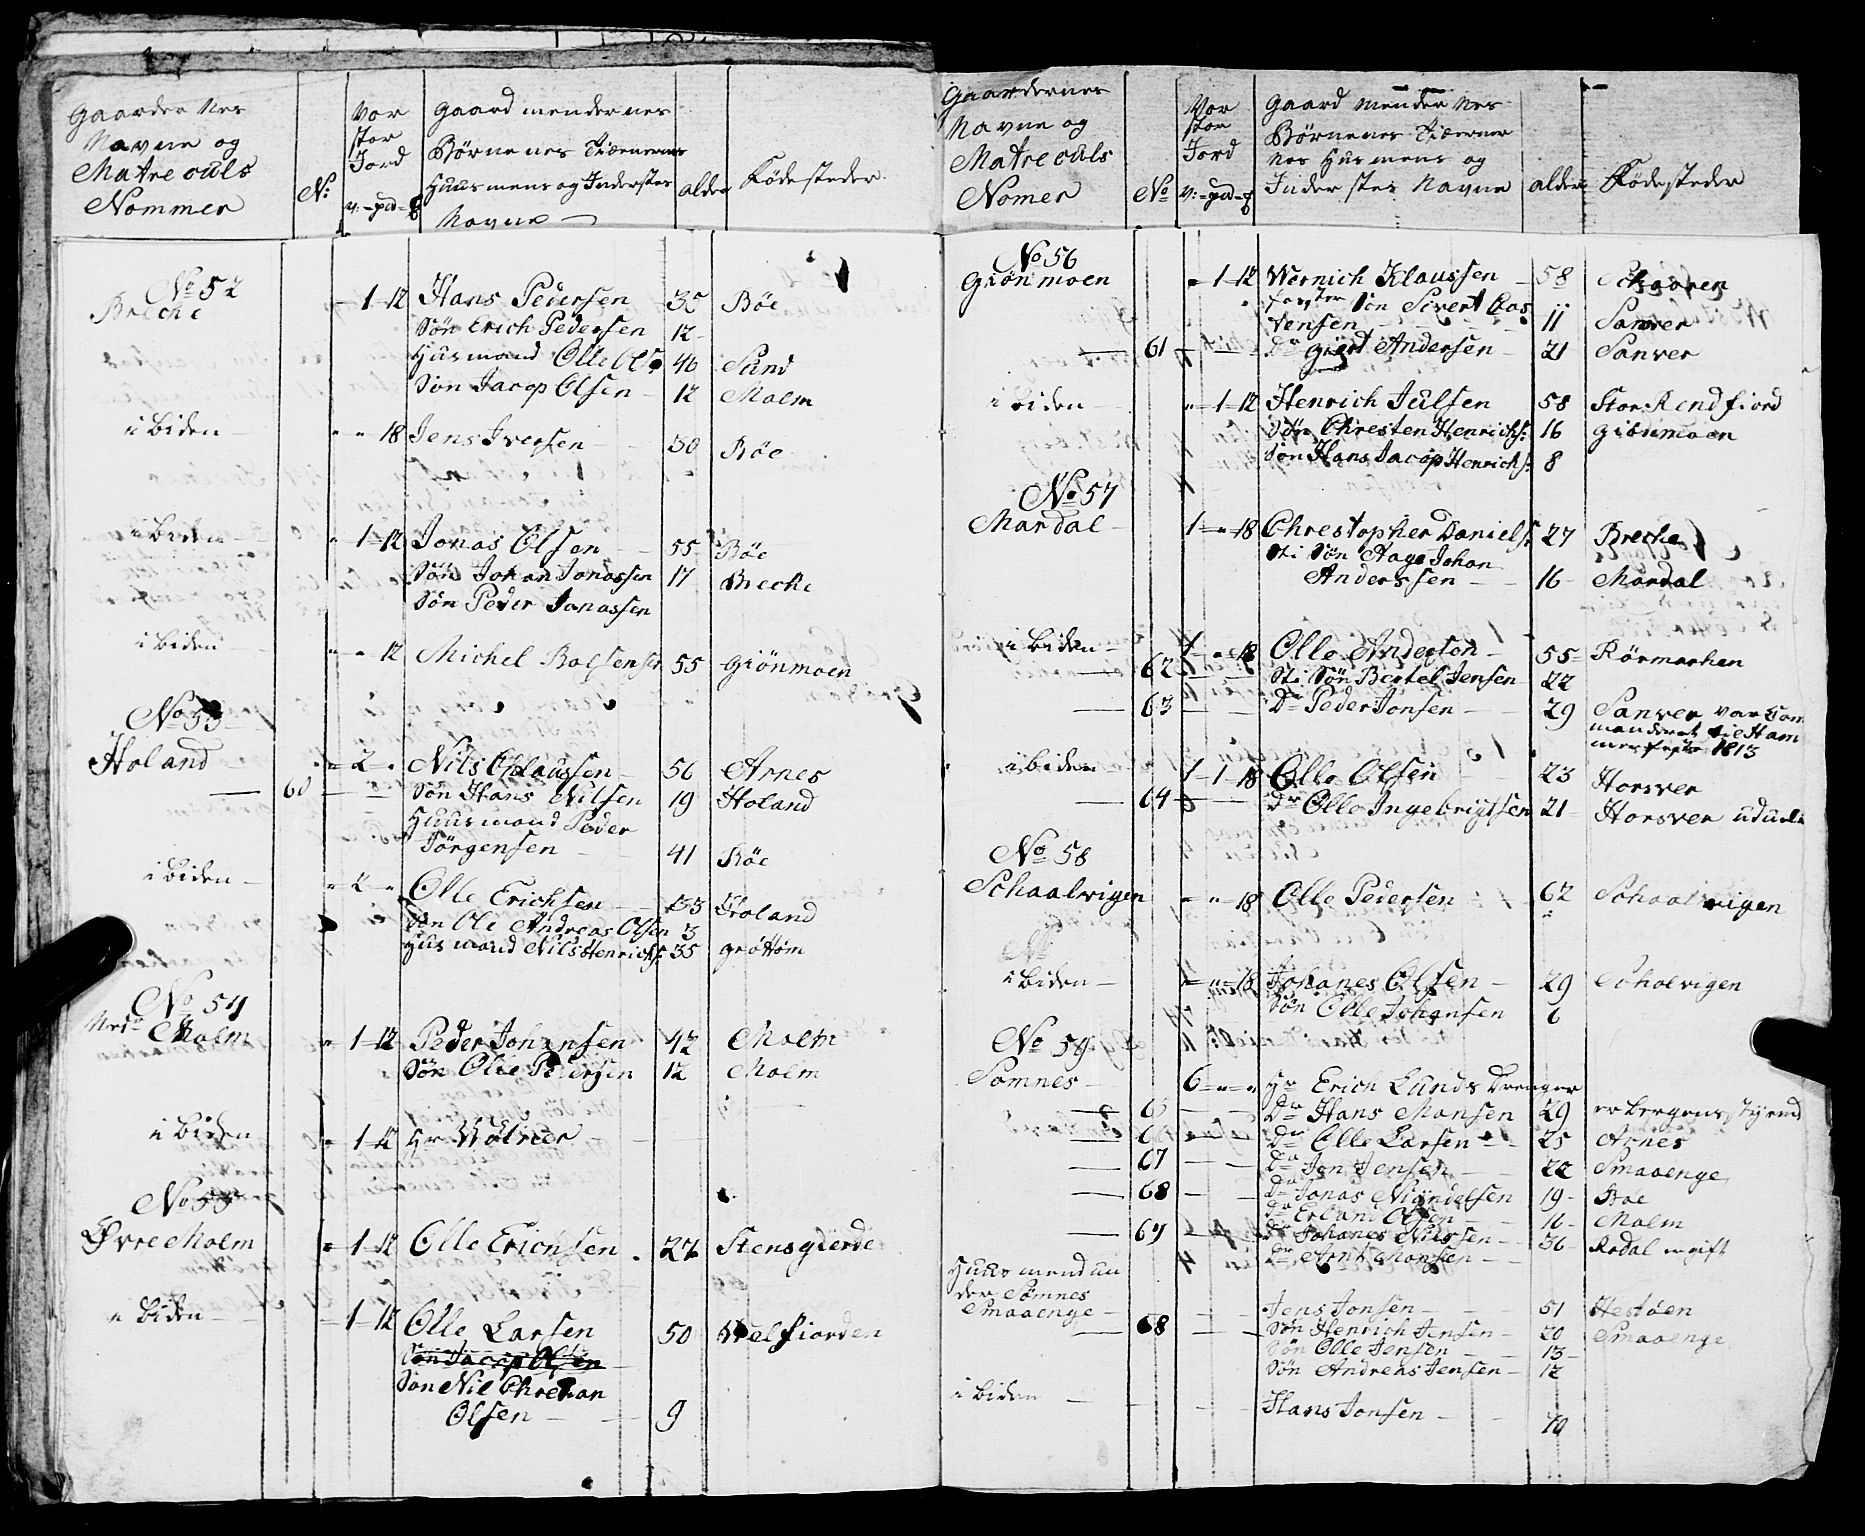 Gaardernes
Navne og
Matreculs
Nommer
No:
Vor
stor
Jord
v:-pd-
Gaard mendernes
Børnenes Tiænernes
Huusmens og Inderstes
Navne
alder
Fødesteder
No 52
Breche
-1-12 Hans Pedersen 35 Böe
Sön Erich Pedersen 12
Husmand Olle Ols: 46 Sund
Sön Jacop Olsen 12 Molm
i biden - " " 18 Jens Iversen 30 Böe
i biden " 1-12 Jonas Olsen 55 Böe
Sön Johan Jonassen 17 Breche
Sön Peder Jonassen
i biden " " 12 Michel 55 Giönmoen
No 53
Holand " 2 " Nils Claussen 56 Arnes
60 Sön Hans Nilsen 19 Holand
Huusmand Peder
Jörgensen 41 Böe
i biden " 2 " Olle Erichsen 33 Holand
Sön Ole Andreas Olsen 3
Husmand Nils Henrichs: 35 gröttöm
No 54
Molm " 1-12 Peder Johansen 42 Molm
Sön Olle Pedersen 12 Molm
i biden " 1-12 Hr Wolner
No 55
Øvre Molm " 1-12 Olle Erichsen 27 Stensgierde
i biden - 1-12 Olle Larsen 50 Welfiorden
Sön Jacop Olsen
Sön Nil Chrestian
Olsen 9
Gaardernes
Navne og
Matreculs
Nomer
No
Vor
stor
Jord
v:-pd-
Gaard mendernes
Børnenes Tiæerner
nes Husmens og
Inderstes Navne
alder
Fødesteder
No 56
Giönmoen " 1-12 Wernich Klaussen 58 Schaaren
foster Sön Sivert Chas
tensen 11 Sanver
61 Dn Giert Andersen 21 Sanver
i biden " 1-12 Henrich Julsen 58 Stor Rendfiord
Sön Chresten Henrichs: 16 Giönmoen
Sön Hans Jacop Henrichs: 8
No 57
Mardal 1 " 18 Chrestopher Daniels: 27 Breche
Sti Sön Aage Johan
Anderssen 16 Mardal
i biden 1 " 18 Olle Andersen 55 Rörmarken
62 Sti Sön Bertel Jensen 22
63 Dn Peder Jonsen 29 Sanver var Com
manderet til Ham
merfest 1813
i biden 1-1-18 Olle Olsen 23 Horsver
64 Dn Olle Ingebrigtsen 21 Horsver
No 58
Schaalvigen " " 18 Olle Pedersen 62 Schaalvigen
No
i biden " " 18 Johanes Olsen 29 Scholvigen
Sön Olle Johansen 6
No 59
Somnes 6 " " Hr Erich Lunds Drenger
65 Dn Hans Monsen 29 er bergens styrmd
66 Dn Olle Larsen 25 Arnes
67 Dn Jon Jensen 22 Smaaenge
68 Dn Jonas 19 Böe
Dn Erland Olsen 16 Molm
69 Dn Johanes Nilssen 36 Rodal er gift
Dn Arnt Monsen
Huusmend un
der Sömnes
Smaaenge Jens Jonsen 51 Hestöen
68 Sön Henrich Jensen 20 Smaaenge
Sön Olle Jensen 13
Sön Andreas Jensen 12
i biden Hans Jonsen 70